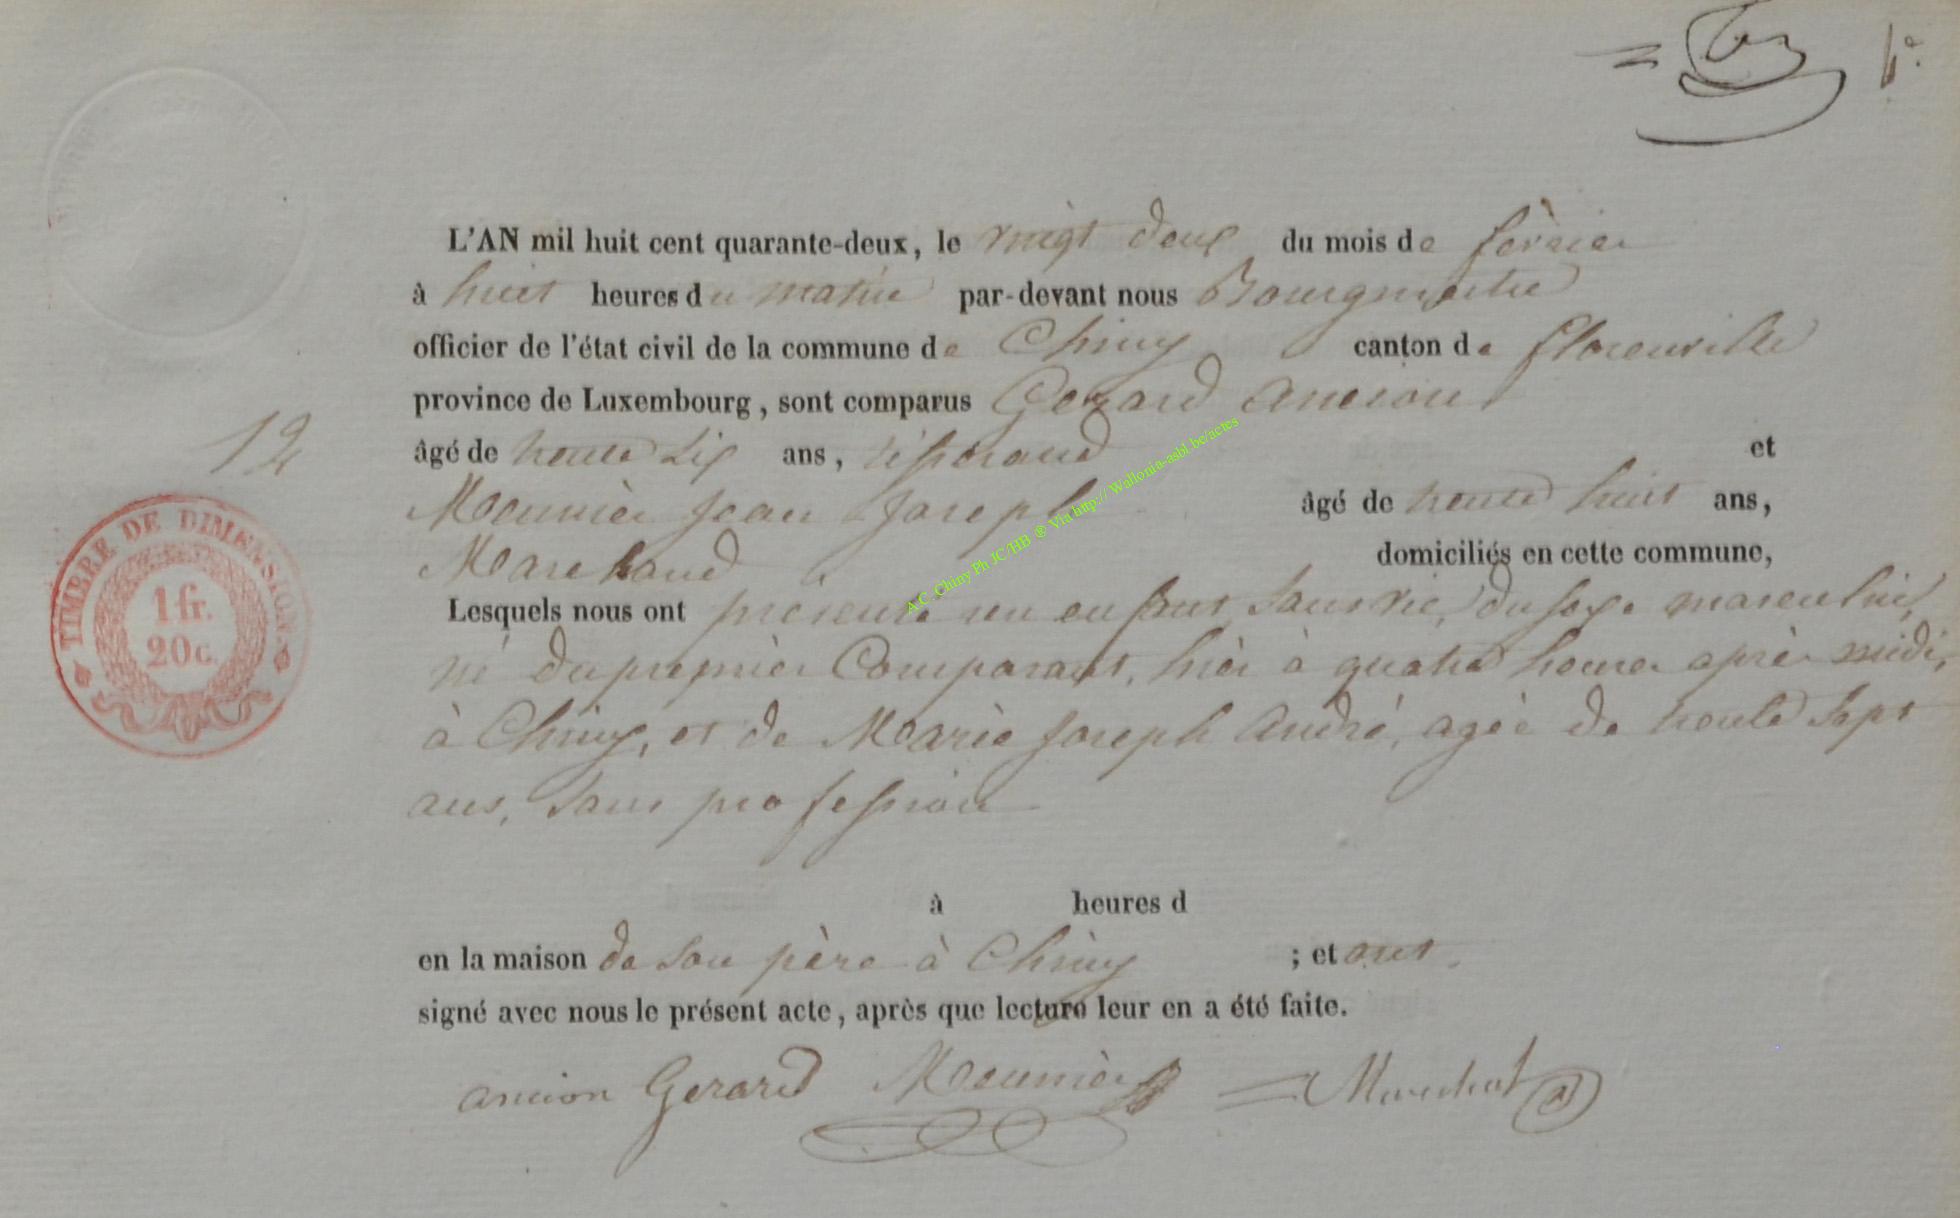 1e.
L'AN mil huit cent quarante-deux, le vingt deux du mois de février
à huit heures du matin par-devant nous Bourgmestre
officier de l'état civil de la commune de Chiny canton de florenville
province de Luxembourg, sont comparus Gerard ancion
12
âgé de trente six ans, tisserand et
Meunier jean joseph âgé de trente huit ans,
Marchand domiciliés en cette commune,
Lesquels nous ont présenté un enfant sans vie, du sexe masculin,
né du premier Comparant, hier à quatre heures après midi,
à Chiny, et de Marie joseph andré, agée de trente sept
ans, sans profession
à heures d
en la maison de son père à Chiny ; et ont
signé avec nous le présent acte, après que lecture leur en a été faite.
ancion Gerard Meunier Marechal
TIMBRE DE DIMENSION
1 fr.
20 c.
A.C. Chiny Ph JC/HB @ Via http:// Wallonia-asbl.be/actes